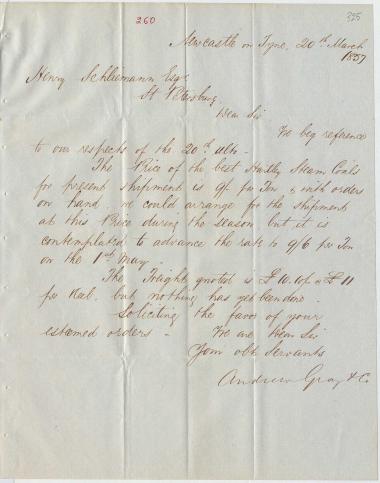 260
325
Newcastle on Tyne, 20th March
1857
Henry Schliemann Esqr
St Petersburg
Dear Sir
We beg reference
to our respects of the 20th ulto.
The Price of the best Hartley Steam Coals
for present shipment is 9/- per Ton, & with orders
on hand we could arrange for the shipment
at this Price during the season but it is
contemplated to advance the rate to 9/6 per Ton
on the 1st May.
The Freight quoted is £10.10/- a £11
per Keel, but nothing has yet been done.
Soliciting the favor of your
esteemed orders - We are Dear Sir
Your obt Servants
Andrew Gray & Co.